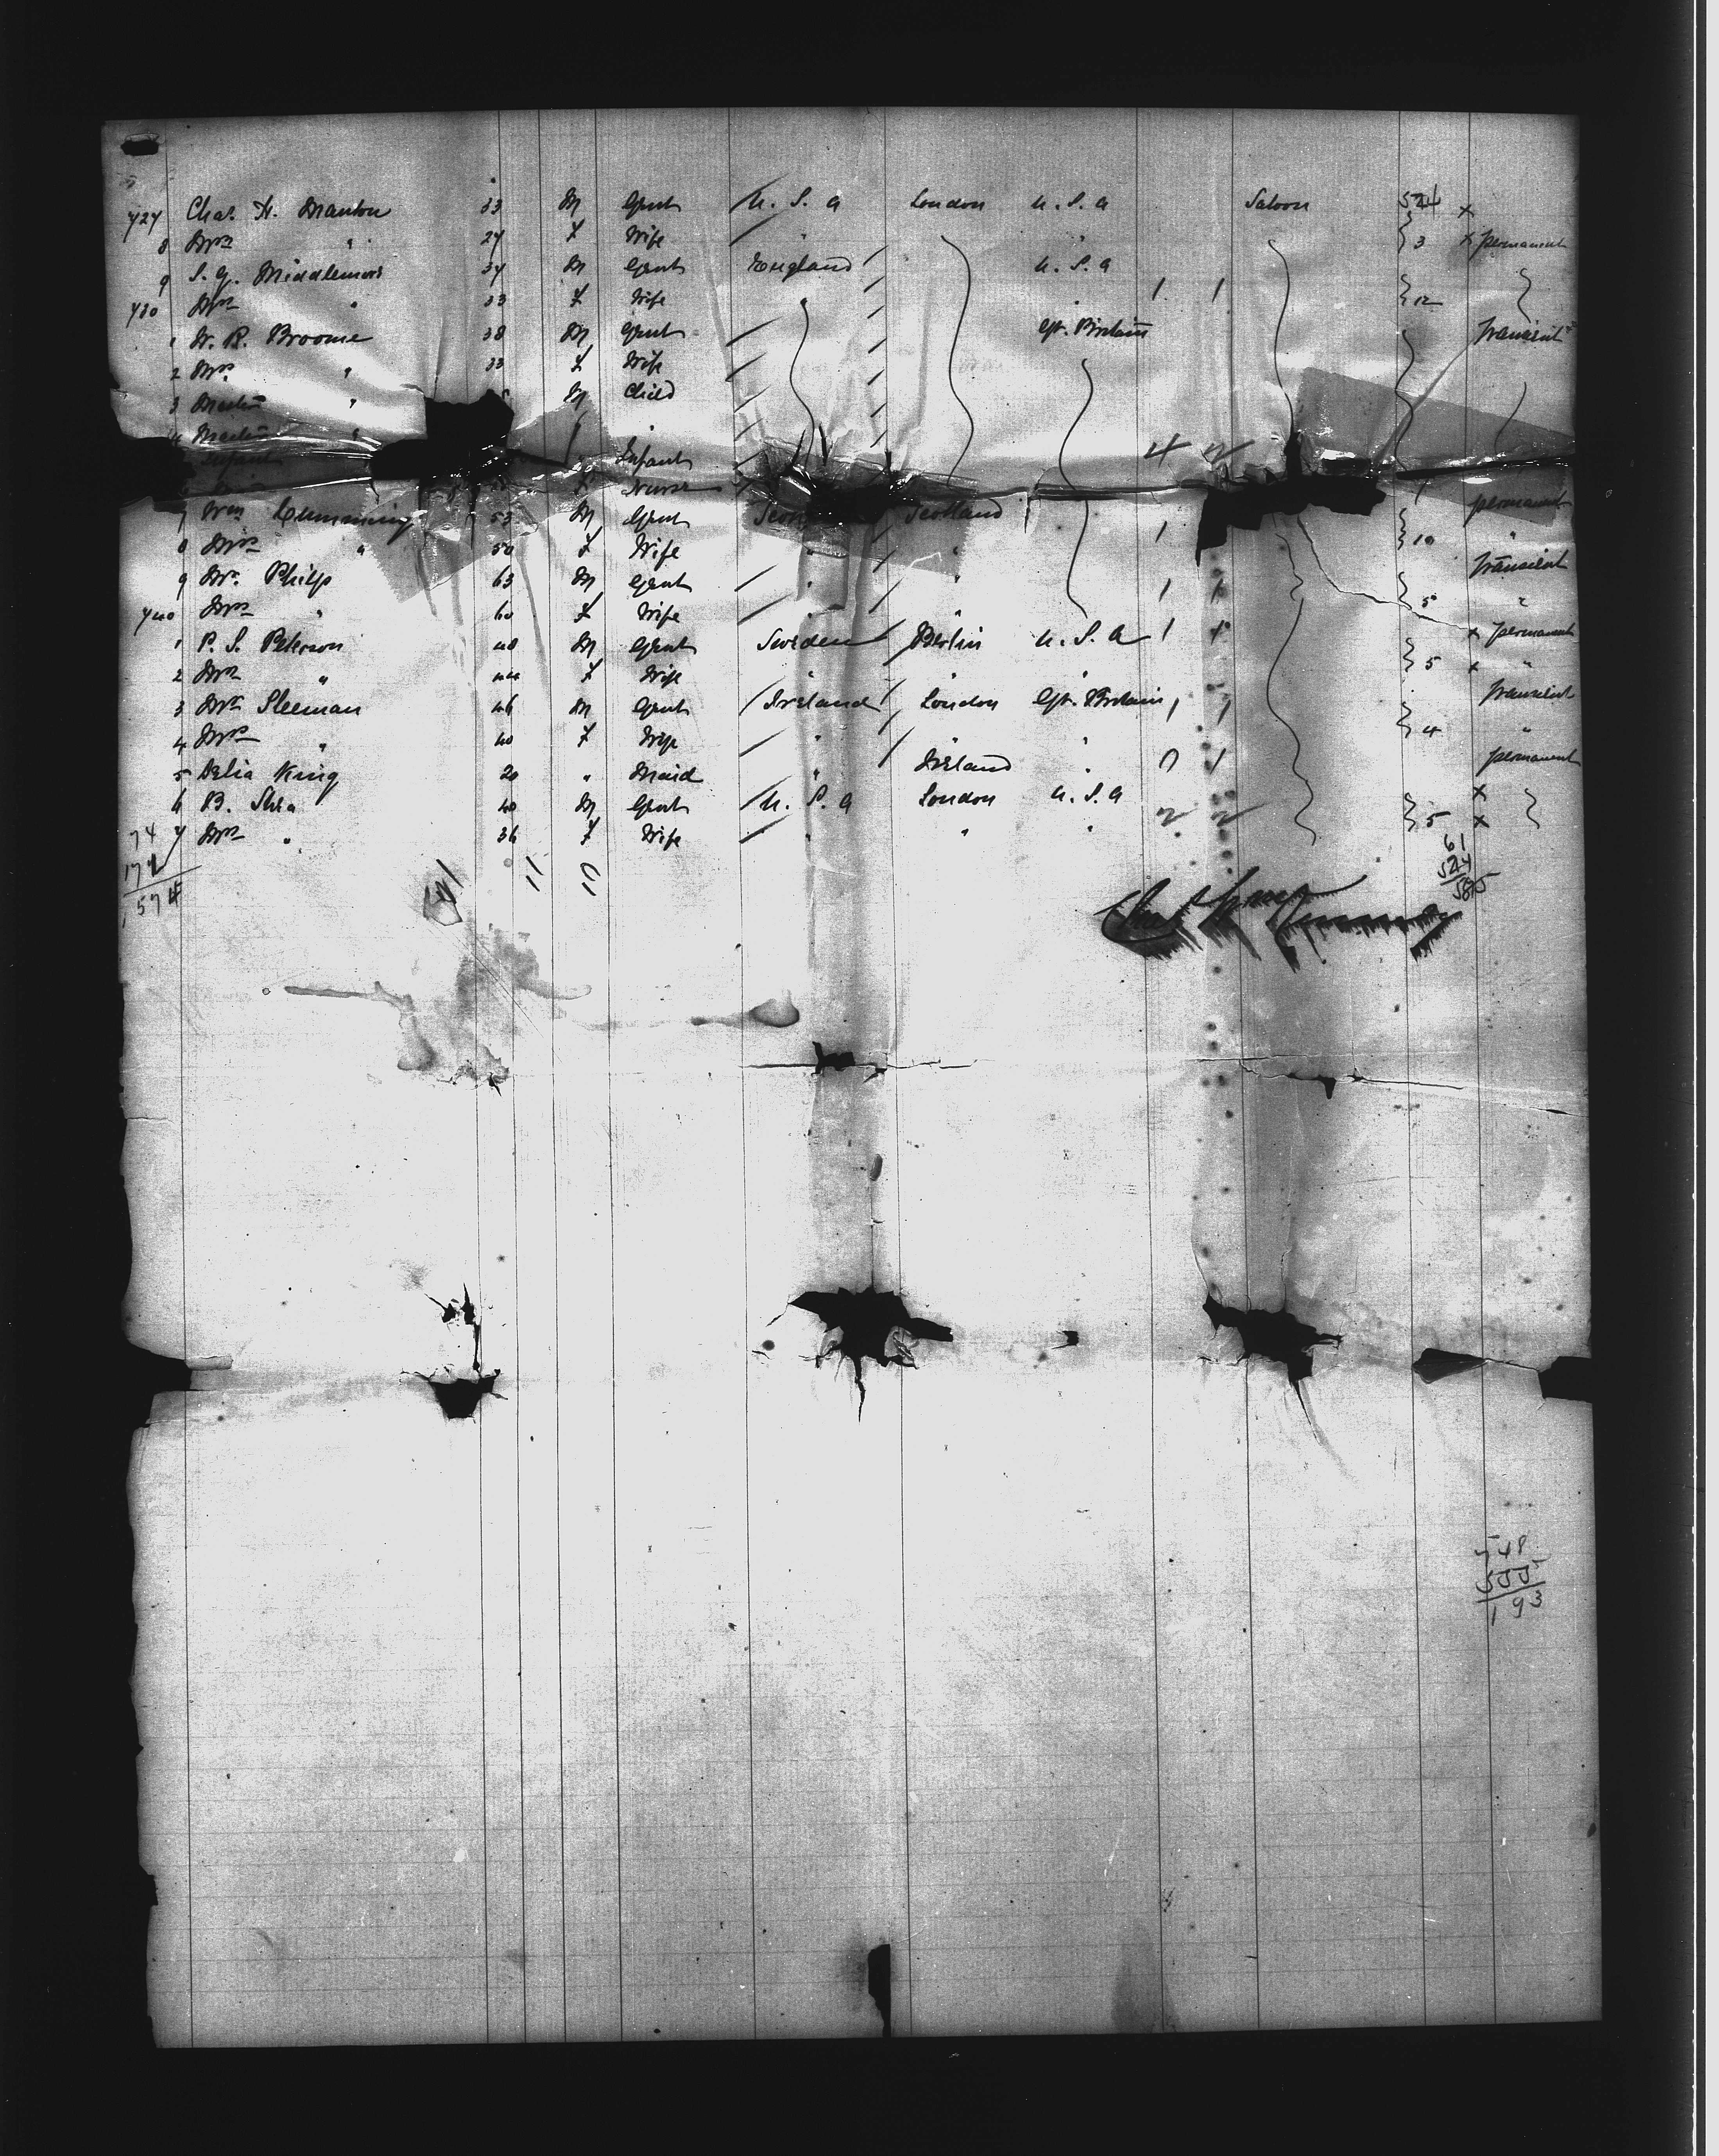 727 Chas. H. Manton 33 M Gent U.S.A London U.S.A Saloon 524 x
8 Mrs " 27 F Wife " } 3 x permanent
9 S. G. Middlemore 37 M Gent England U.S.A
730 Mrs " 33 F Wife " 1 1 } 12
1 W. R. Broome 38 M Gent Gt. Britain Transient
2 Mrs " 33 F Wife
3 Master " M Child
4 Master " "
Infant " Infant 4 2
F Nurse
7 Wm Cumming 53 M Gent Scotland permanent
8 Mrs " 50 F Wife " " 1 } 10 "
9 Mr. Philp 63 M Gent " " 1 1 Transient
740 Mrs " 60 F Wife " " } 5 "
1 P. S. Peterson 40 M Gent Sweden Berlin U.S.A 1 x permanent
2 Mrs " 44 F Wife " " " } 5 x "
3 Mr Sleeman 46 M Gent Ireland London Gt. Britain 1 1 Transient
4 Mrs " 40 F Wife " " " } 4 "
5 Delia King 20 " Maid " Ireland " 0 1 permanent
6 B. Shea 40 M Gent U.S.A London U.S.A x
7 Mrs " 36 F Wife " " " 2 2 } 5 x
74 61
524
585
11 10
574
748
555
193